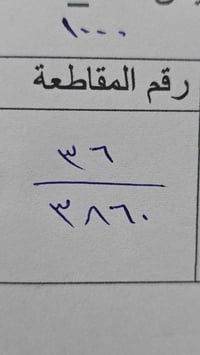 ١٠٠٠
رقم المقاطعة
٣٦
٣٨٦٠